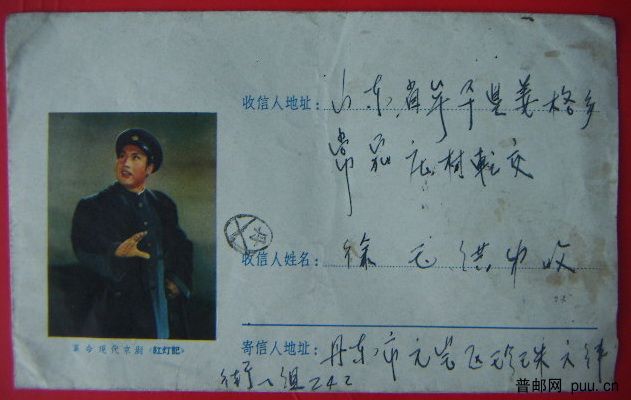 收信人地址：山东省茌平县姜格乡
常庄村转交
收信人姓名：徐
收
革命现代京剧《紅灯記》
寄信人地址：丹东市元宝区珍珠
街 组 242
普邮网 puu.cn